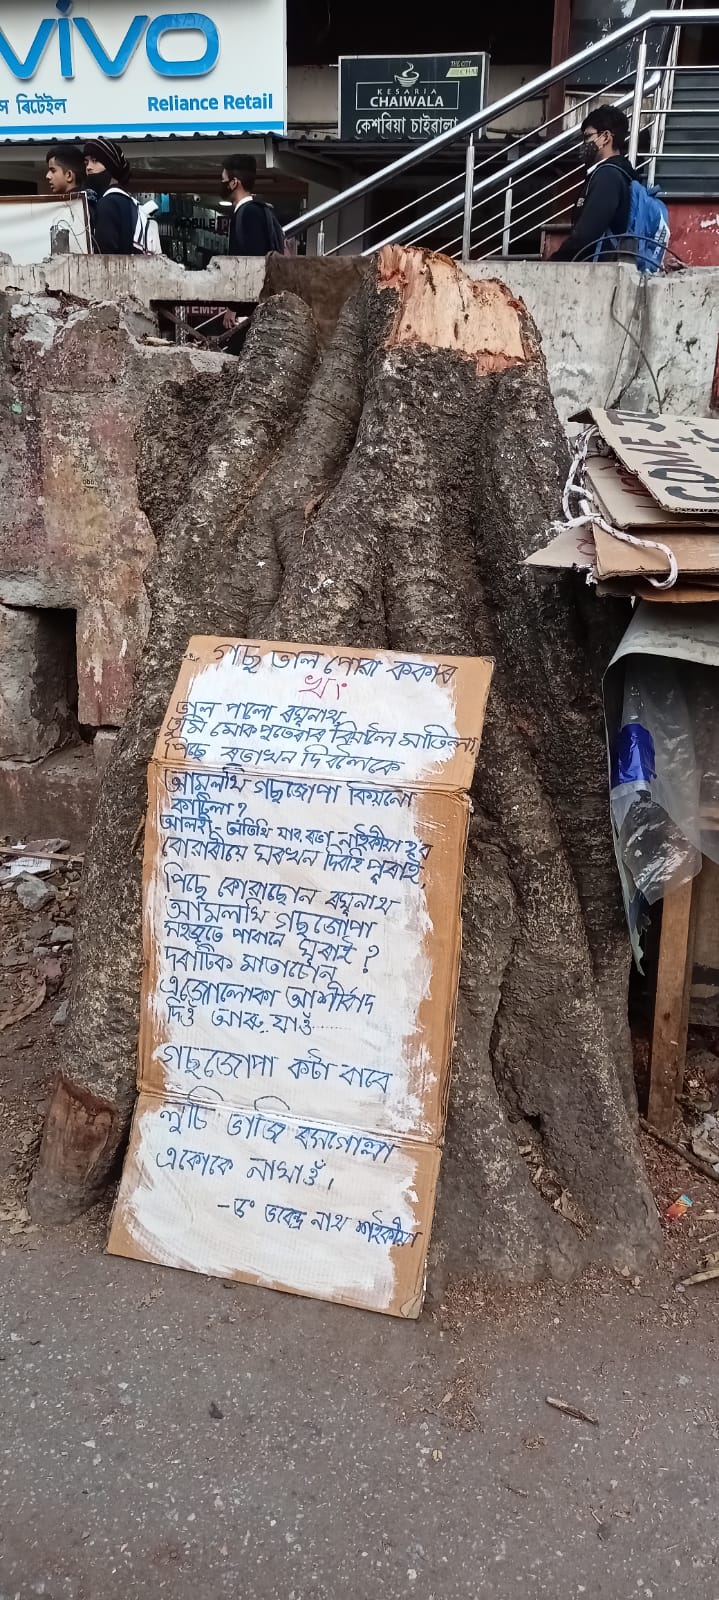 vivo
স ৰিটেইল Reliance Retail
THE CITY
CHAI
KESARIA
CHAIWALA
কেশৰিয়া চাইৱালা
COME
গছ ভাল পোৱা ককাৰ
খং
ভাল পালো ৰঘুনাথ,
তুমি মোক পুতেৰাৰ বিয়ালৈ মাতিলা,
পিছে ৰভাখন দিবলৈকে
আমলখি গছজোপা কিয়নো
কাটিলা?
আলহী অতিথি যাব, ৰভা নাইকীয়া হ'ব
বোৱাৰীয়ে ঘৰখন দিবহি পুৰাই,
পিছে কোৱাচোন ৰঘুনাথ
আমলখি গছজোপা
সহজতে পাবানে ঘূৰাই?
দৰাটিক মাতাচোন
এজোলোকা আশীৰ্বাদ
দিওঁ আৰু যাওঁ......
গছজোপা কটা বাবে
লুচি ভাজি ৰসগোল্লা
একোকে নাখাওঁ।
-ড° ভবেন্দ্ৰ নাথ শইকীয়া